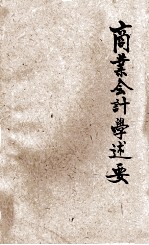 商業会計學述要